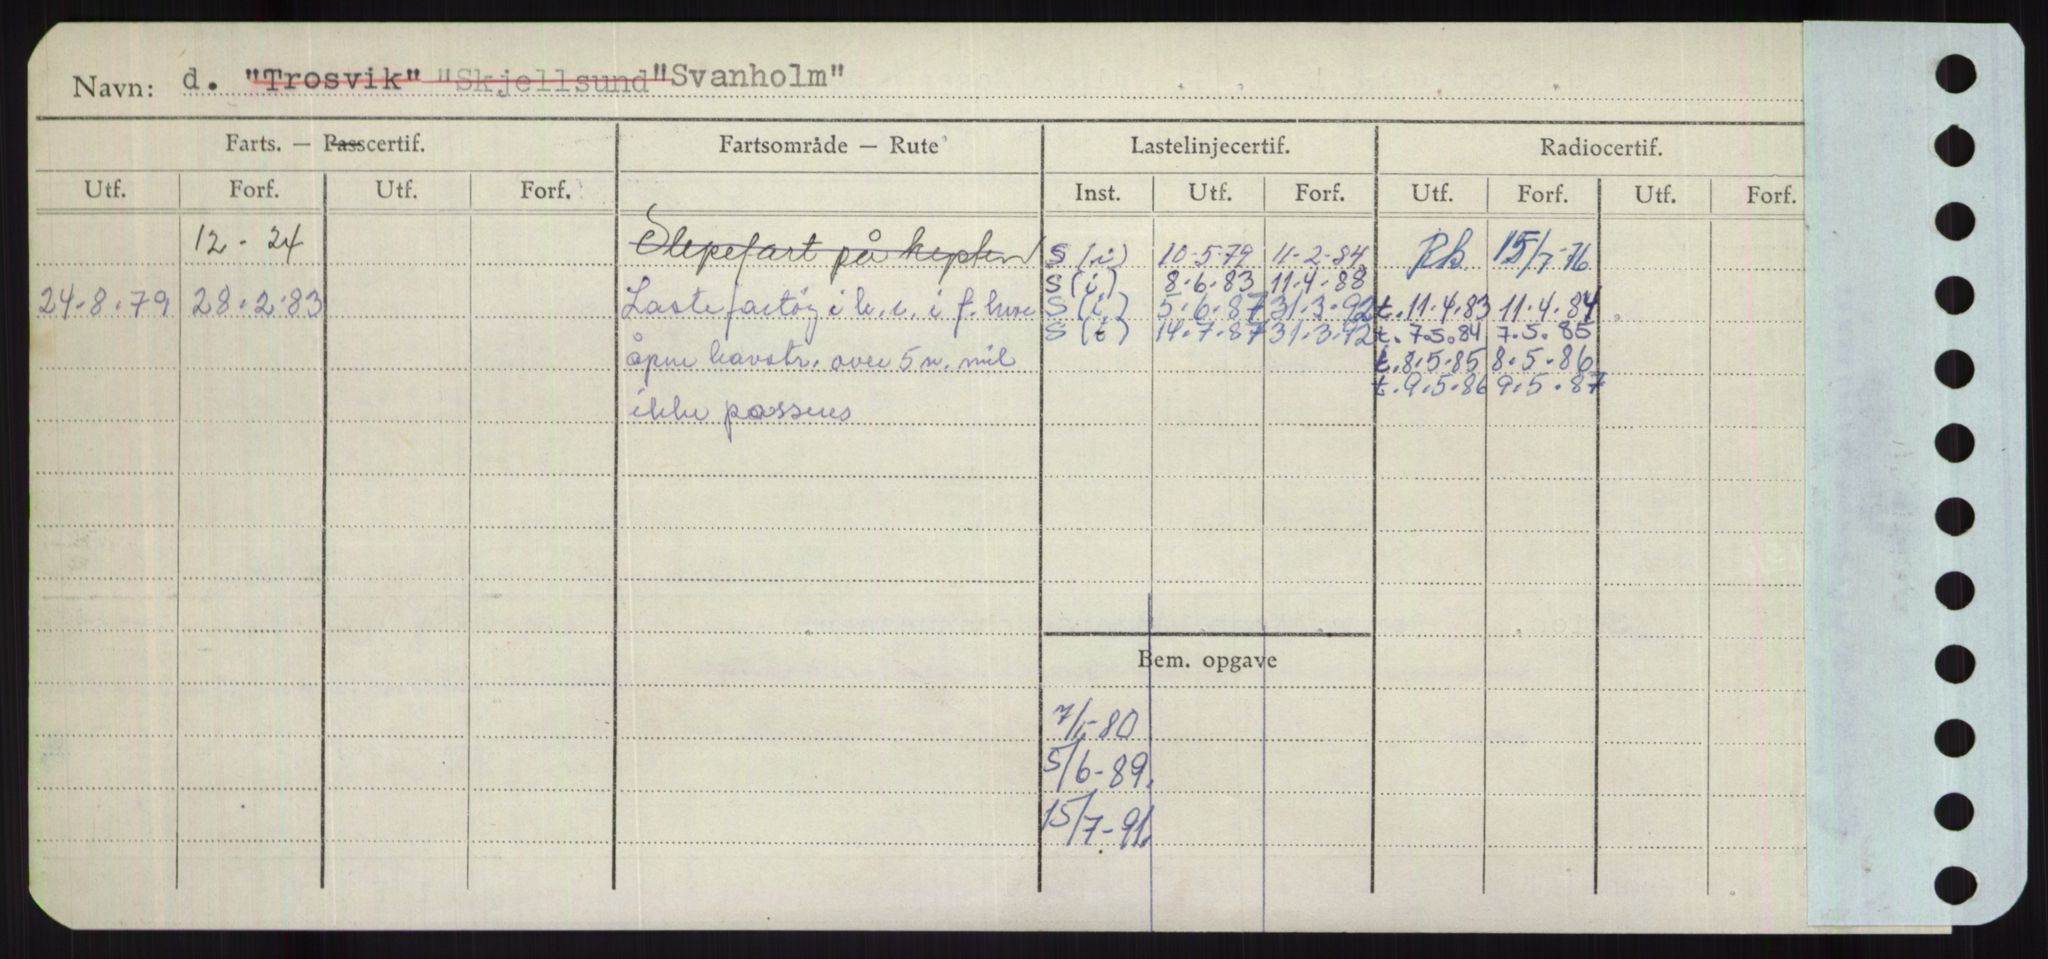 Navn: d. "Trosvik" "Skjellsund "Svanholm"
Farts. — Passcertif. Fartsområde — Rute Lastelinjecertif. Radiocertif.
Utf. Forf. Utf. Forf. Inst. Utf. Forf. Utf. Forf. Utf. Forf.
12 - 24 Slepefart på kysten S (i) 10-5-79 11-2-84 Rk. 15/7-76
S (i) 8.6.83 11.4.88
24.8.79 28.2.83 Lastefartøy i k. i f. hvor S (i) 5.6.87 31.3.92 t. 11.4.83 11.4.84
S (i) 14.7.87 31.3.92 t. 7.5.84 7.5.85
åpne havstr. over 5 n. mil t. 8.5.85 8.5.86
t. 9.5.86 9.5.87
ikke passeres
Bem. opgave
7/1-80
5/6-89.
15/7-91.